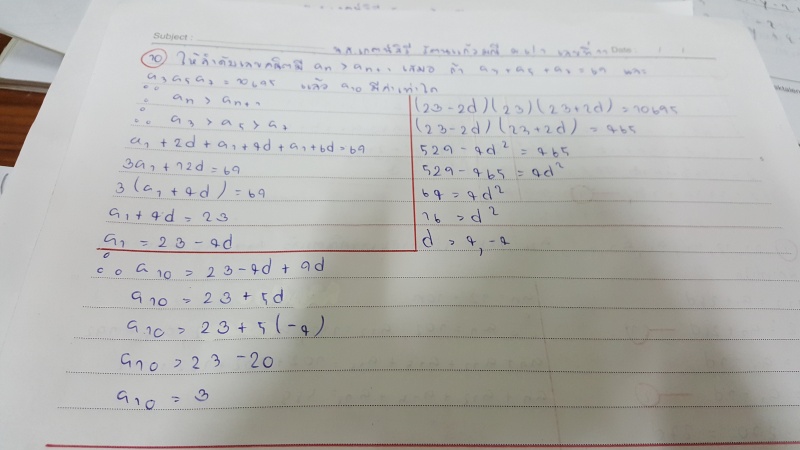 Subject :
Date : / /
10 ให้ลำดับเลขคณิตมี aₙ > aₙ₊₁ เสมอ ถ้า a₃ + a₅ + a₇ = 69 และ
a₃a₅a₇ = 10695 แล้ว a₁₀ มีค่าเท่าใด
∵ aₙ > aₙ₊₁
∴ a₃ > a₅ > a₇
a₁ + 2d + a₁ + 4d + a₁ + 6d = 69
3a₁ + 12d = 69
3(a₁ + 4d) = 69
a₁ + 4d = 23
a₁ = 23 - 4d
(23-2d)(23)(23+2d) = 10695
(23-2d)(23+2d) = 465
529 - 4d² = 465
529 - 465 = 4d²
64 = 4d²
16 = d²
d = 4, -4
∴ a₁₀ = 23 - 4d + 9d
a₁₀ = 23 + 5d
a₁₀ = 23 + 5(-4)
a₁₀ = 23 - 20
a₁₀ = 3